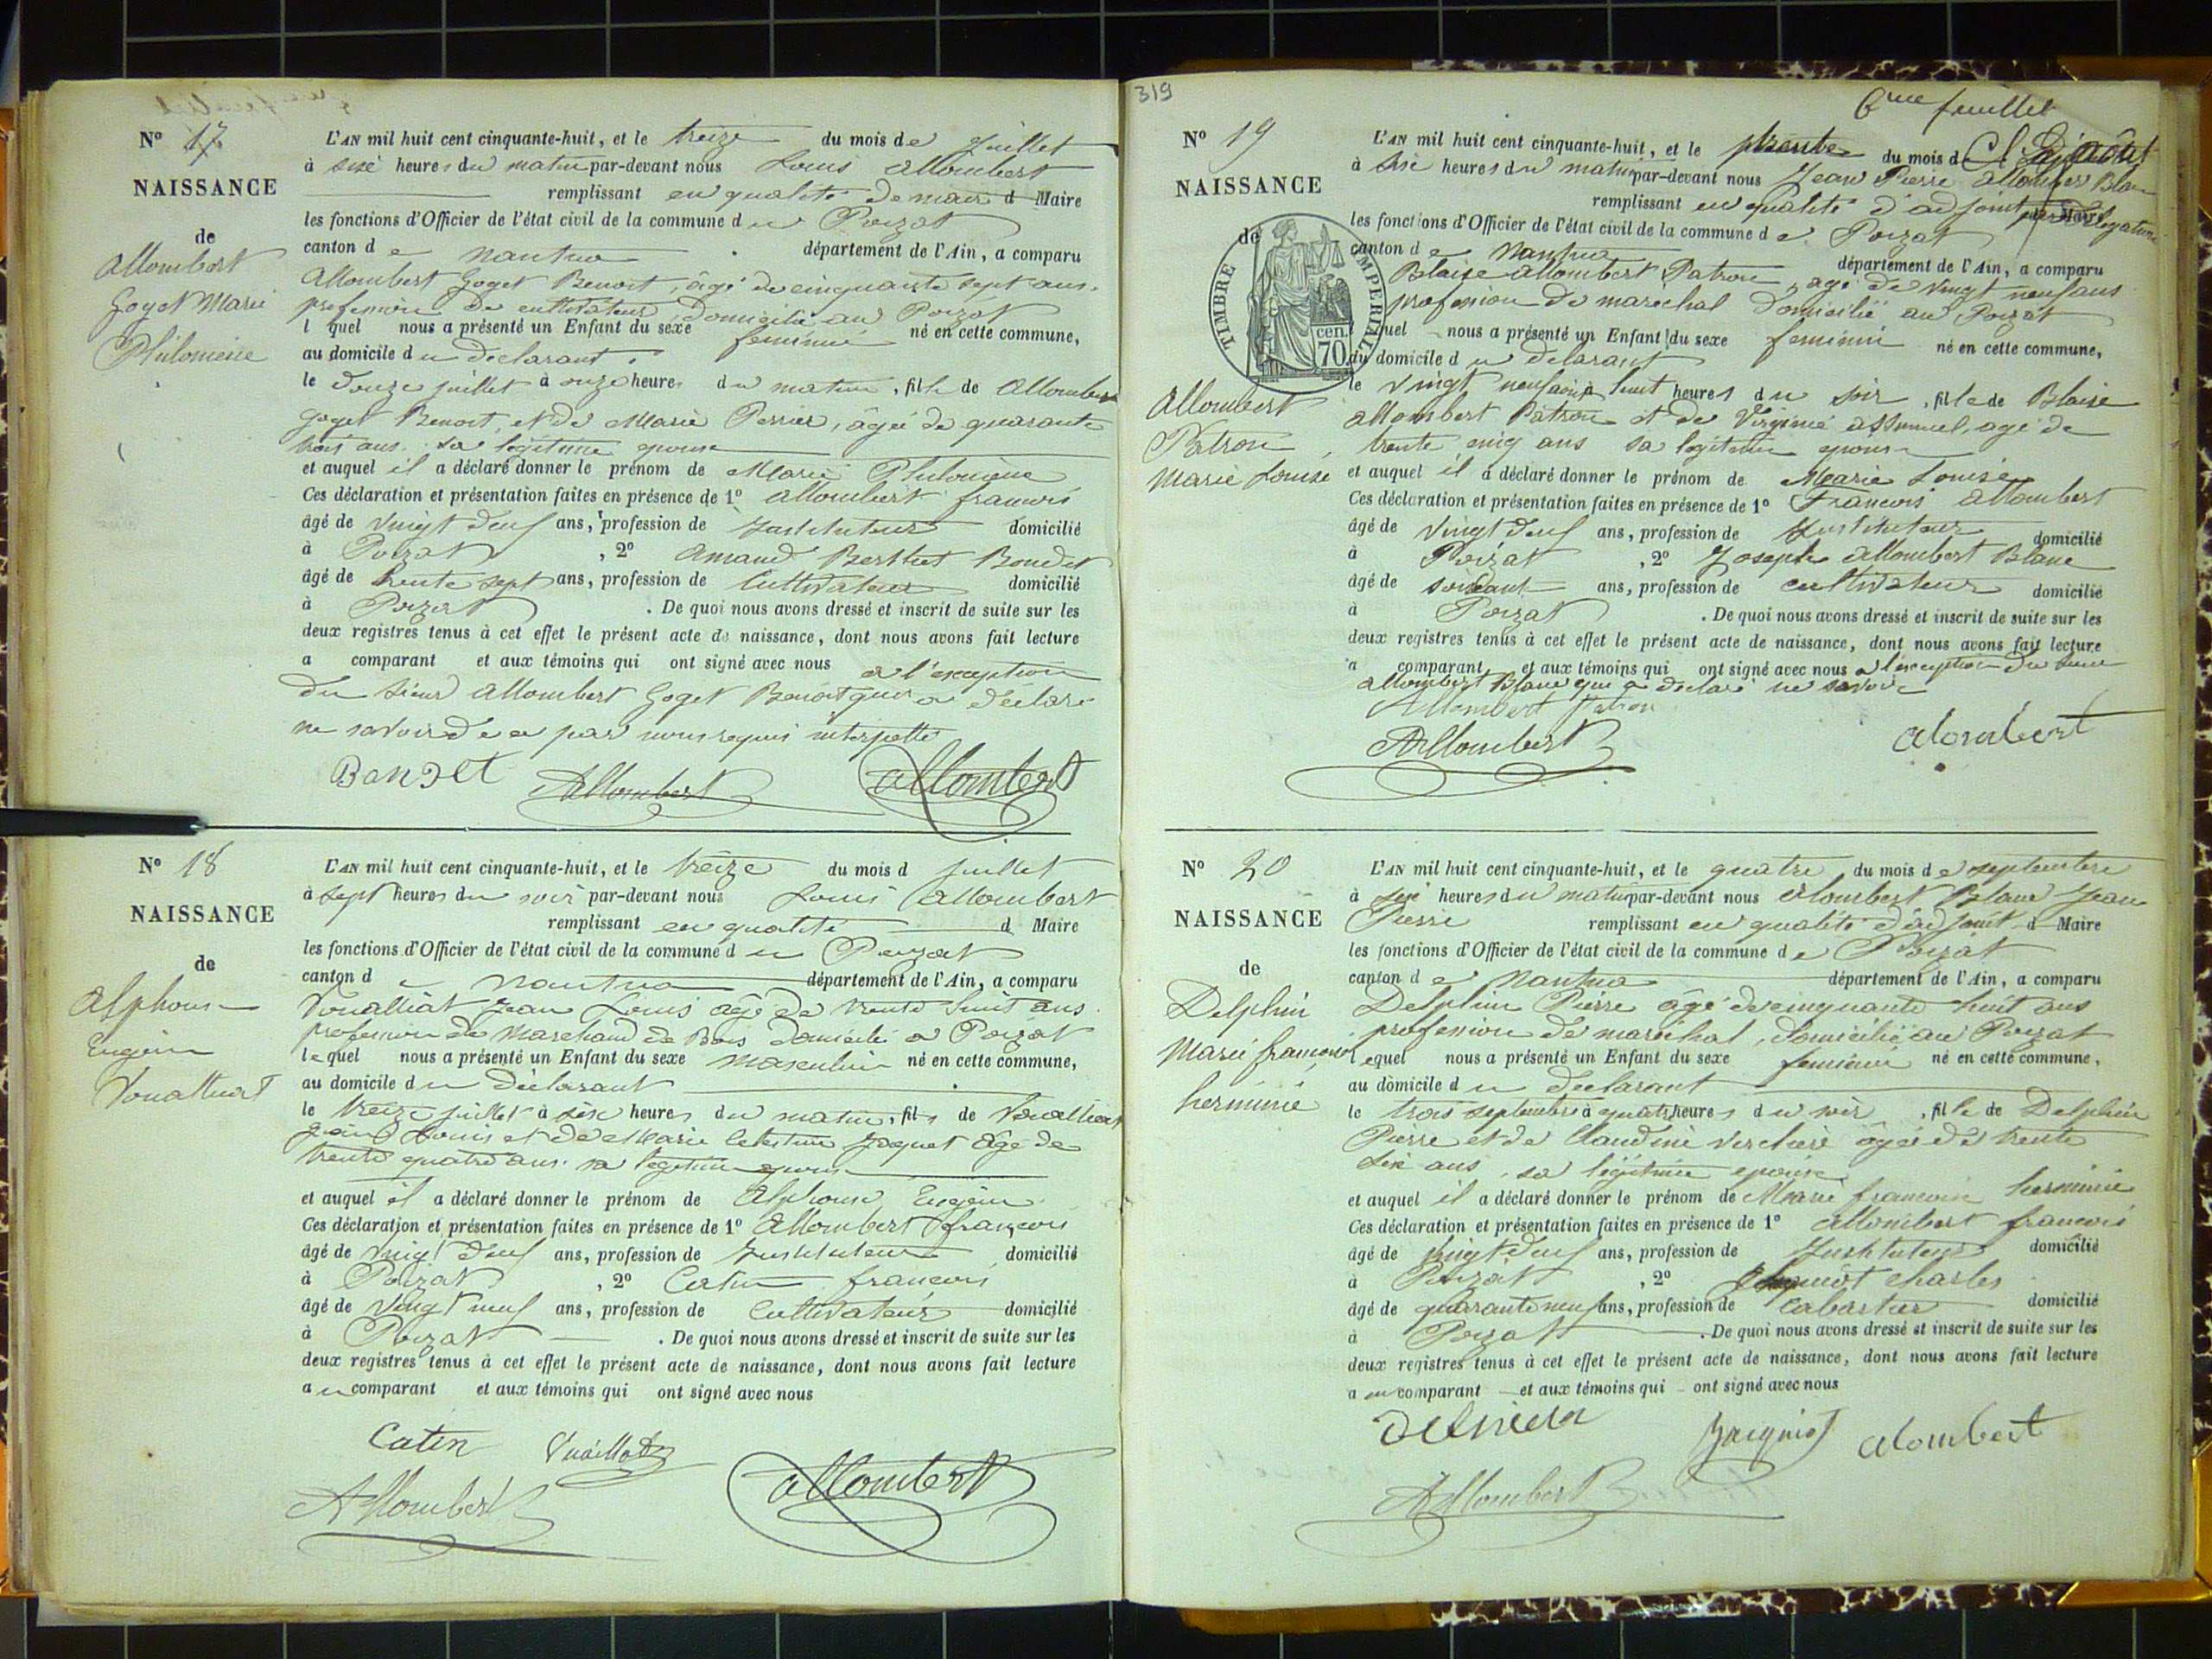 Nº 17
NAISSANCE
de
Allombert
Goget Marie
Philomène
L'AN mil huit cent cinquante-huit, et le treize du mois de juillet
à sixe heures du matin par-devant nous Louis Allombert
remplissant en qualité de maire d Maire
les fonctions d'Officier de l'état civil de la commune du Poizat
canton de Nantua département de l'Ain, a comparu
Allombert Goget Benoit, âgé de cinquante sept ans.
profession de cultivateur, domicilié au Poizat
l quel nous a présenté un Enfant du sexe feminin né en cette commune,
au domicile du declarant.
le Douze juillet à onze heures du matin, fille de Allombert
Goget Benoit, et de Marie Perrier, âgée de quarante
trois ans. sa legitime epouse
et auquel il a déclaré donner le prénom de Marie Philomène
Ces déclaration et présentation faites en présence de 1º Allombert francois
âgé de vingt deuf ans, profession de Instituteur domicilié
à Poizat, 2º Amand Berthet Bondet
âgé de trente sept ans, profession de Cultivateur domicilié
à Poizat. De quoi nous avons dressé et inscrit de suite sur les
deux registres tenus à cet effet le présent acte de naissance, dont nous avons fait lecture
a comparant et aux témoins qui ont signé avec nous a l'exception
du Sieur Allombert Goget Benoit qui a déclaré
ne savoir de ce par nous requis interpellé
Bondet Allombert Allombert
Nº 18
NAISSANCE
de
Alphonse
Eugène
L'AN mil huit cent cinquante-huit, et le treize du mois d juillet
à sept heures du soir par-devant nous Louis Allombert
remplissant en qualité d Maire
les fonctions d'Officier de l'état civil de la commune du Poizat
canton d Nantua département de l'Ain, a comparu
Voualliat Jean Louis âgé de trente huit ans.
profession de Marchand de Bois domicilié a Poizat
lequel nous a présenté un Enfant du sexe masculin né en cette commune,
au domicile du Déclarant
le treize juillet à six heures du matin, fils de Voualliat
Jean Louis et de Marie Celestine Jaquet âgé de
trente quatre ans. sa legitime epouse
et auquel il a déclaré donner le prénom de Alphonse Eugène
Ces déclaration et présentation faites en présence de 1º Allombert françois
âgé de vingt deuf ans, profession de Instituteur domicilié
à Poizat, 2º Catin francois
âgé de vingt neuf ans, profession de Cultivateur domicilié
à Poizat. De quoi nous avons dressé et inscrit de suite sur les
deux registres tenus à cet effet le présent acte de naissance, dont nous avons fait lecture
au comparant et aux témoins qui ont signé avec nous
Catin Vuaillat
Allombert Allombert
319
6me feuillet
Nº 19
NAISSANCE
de
TIMBRE IMPERIAL
70 cen.
Allombert
Patron
Marie Louise
L'AN mil huit cent cinquante-huit, et le trente du mois d août
à sixe heures du matin par-devant nous Jean Pierre Allombert Blanc
remplissant en qualité d'adjoint par délégation Maire
les fonctions d'Officier de l'état civil de la commune de Poizat
canton de Nantua département de l'Ain, a comparu
Blaise Allombert Patron, agé de vingt neuf ans
profession de maréchal domicilié au Poizat
quel nous a présenté un Enfant du sexe feminin né en cette commune,
du domicile du declarant
le vingt neuf août à huit heures du soir, fille de Blaise
Allombert Patron et de Virginie assumel, age de
trente cinq ans sa legitime epouse
et auquel il a déclaré donner le prénom de Marie Louise
Ces déclaration et présentation faites en présence de 1º Francois Allombert
âgé de vingt deuf ans, profession de Instituteur domicilié
à Poizat, 2º Joseph Allombert Blanc
âgé de soixante ans, profession de cultivateur domicilié
à Poizat. De quoi nous avons dressé et inscrit de suite sur les
deux registres tenus à cet effet le présent acte de naissance, dont nous avons fait lecture
a comparant et aux témoins qui ont signé avec nous a l'exception du sieur
allombert Blanc qui a déclaré ne savoir
Allombert Patron
Allombert alombert
Nº 20
NAISSANCE
de
Delphin
Marie francoise
herminie
L'AN mil huit cent cinquante-huit, et le quatre du mois de septembre
à sixe heures du matin par-devant nous Alombert Blanc Jean
Pierre remplissant en qualité d'adjoint d Maire
les fonctions d'Officier de l'état civil de la commune de Poizat
canton de Nantua département de l'Ain, a comparu
Delphin Pierre âgé de cinquante huit ans
profession de maréchal, domicilié au Poizat
lequel nous a présenté un Enfant du sexe feminin né en cette commune,
au domicile du declarant
le trois septembre à quatre heures du soir, fille de Delphin
Pierre et de Claudine Verchere âgée de trente
sixe ans, sa légitime epouse
et auquel il a déclaré donner le prénom de Marie francoise herminie
Ces déclaration et présentation faites en présence de 1º Allombert francois
âgé de vingt deuf ans, profession de Instituteur domicilié
à Poizat, 2º Jaquiot Charles
âgé de quarante neuf ans, profession de Cabartier domicilié
à Poizat. De quoi nous avons dressé et inscrit de suite sur les
deux registres tenus à cet effet le présent acte de naissance, dont nous avons fait lecture
au comparant et aux témoins qui ont signé avec nous
Jaquiot alombert
Allombert